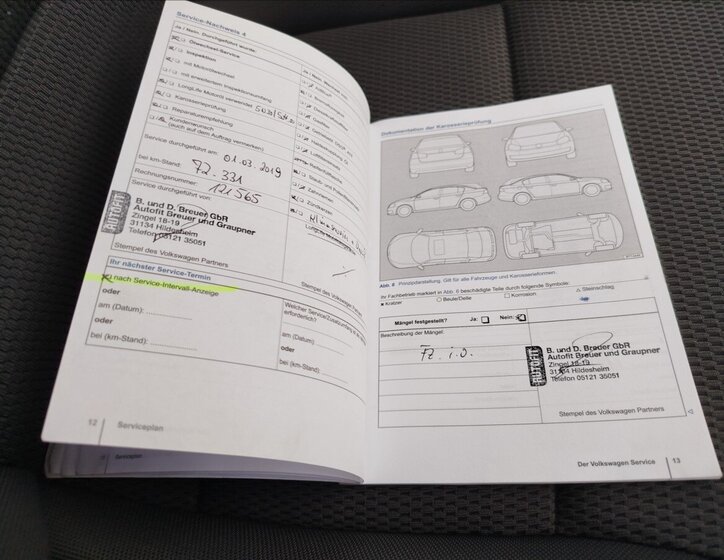 Service-Nachweis 4
Ja / Nein. Durchgeführt wurde:
Ölwechsel-Service
Inspektion
mit Motorölwechsel
mit erweitertem Inspektionsumfang
LongLife Motoröl verwendet
Karosserieprüfung
Reparaturempfehlung
Kundenwunsch
(auch auf dem Auftrag vermerken)
Service durchgeführt am: 01.03.2019
bei km-Stand: 72.331
Rechnungsnummer: 121565
Service durchgeführt von:
AUTOFIT
B. und D. Breuer GbR
Autofit Breuer und Graupner
Zingel 18-19
31134 Hildesheim
Telefon 05121 35051
Stempel des Volkswagen Partners
Ihr nächster Service-Termin
nach Service-Intervall-Anzeige
oder
am (Datum):
oder
bei (km-Stand):
Welcher Service/Zusatzumfang ist
erforderlich?
am (Datum)
oder
bei (km-Stand):
12
Serviceplan
Serviceplan
Dokumentation der Karosserieprüfung
Abb. 6 Prinzipdarstellung. Gilt für alle Fahrzeuge und Karosserieformen.
Ihr Fachbetrieb markiert in Abb. 6 beschädigte Teile durch folgende Symbole:
× Kratzer ○ Beule/Delle □ Korrosion △ Steinschlag
Mängel festgestellt? Ja: Nein:
Beschreibung der Mängel:
Fz. i.o.
AUTOFIT
B. und D. Breuer GbR
Autofit Breuer und Graupner
Zingel 18-19
31134 Hildesheim
Telefon 05121 35051
Stempel des Volkswagen Partners
Der Volkswagen Service
13